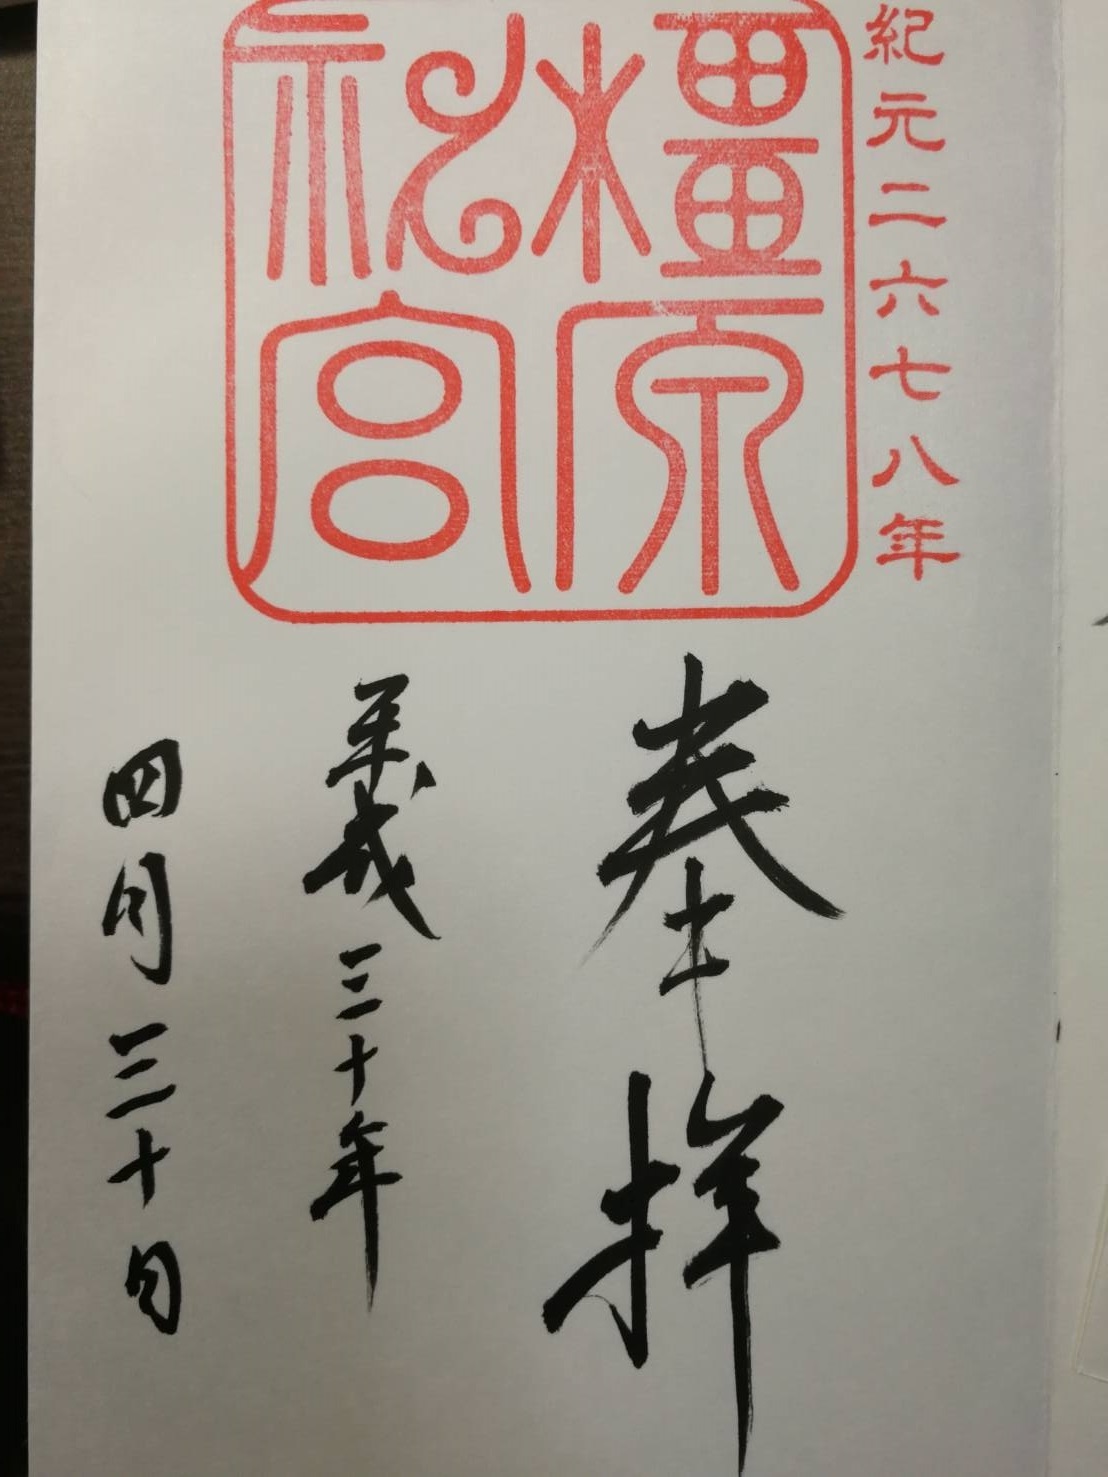 紀元二六七八年
橿原神宮
奉拝
平成三十年
四月三十日